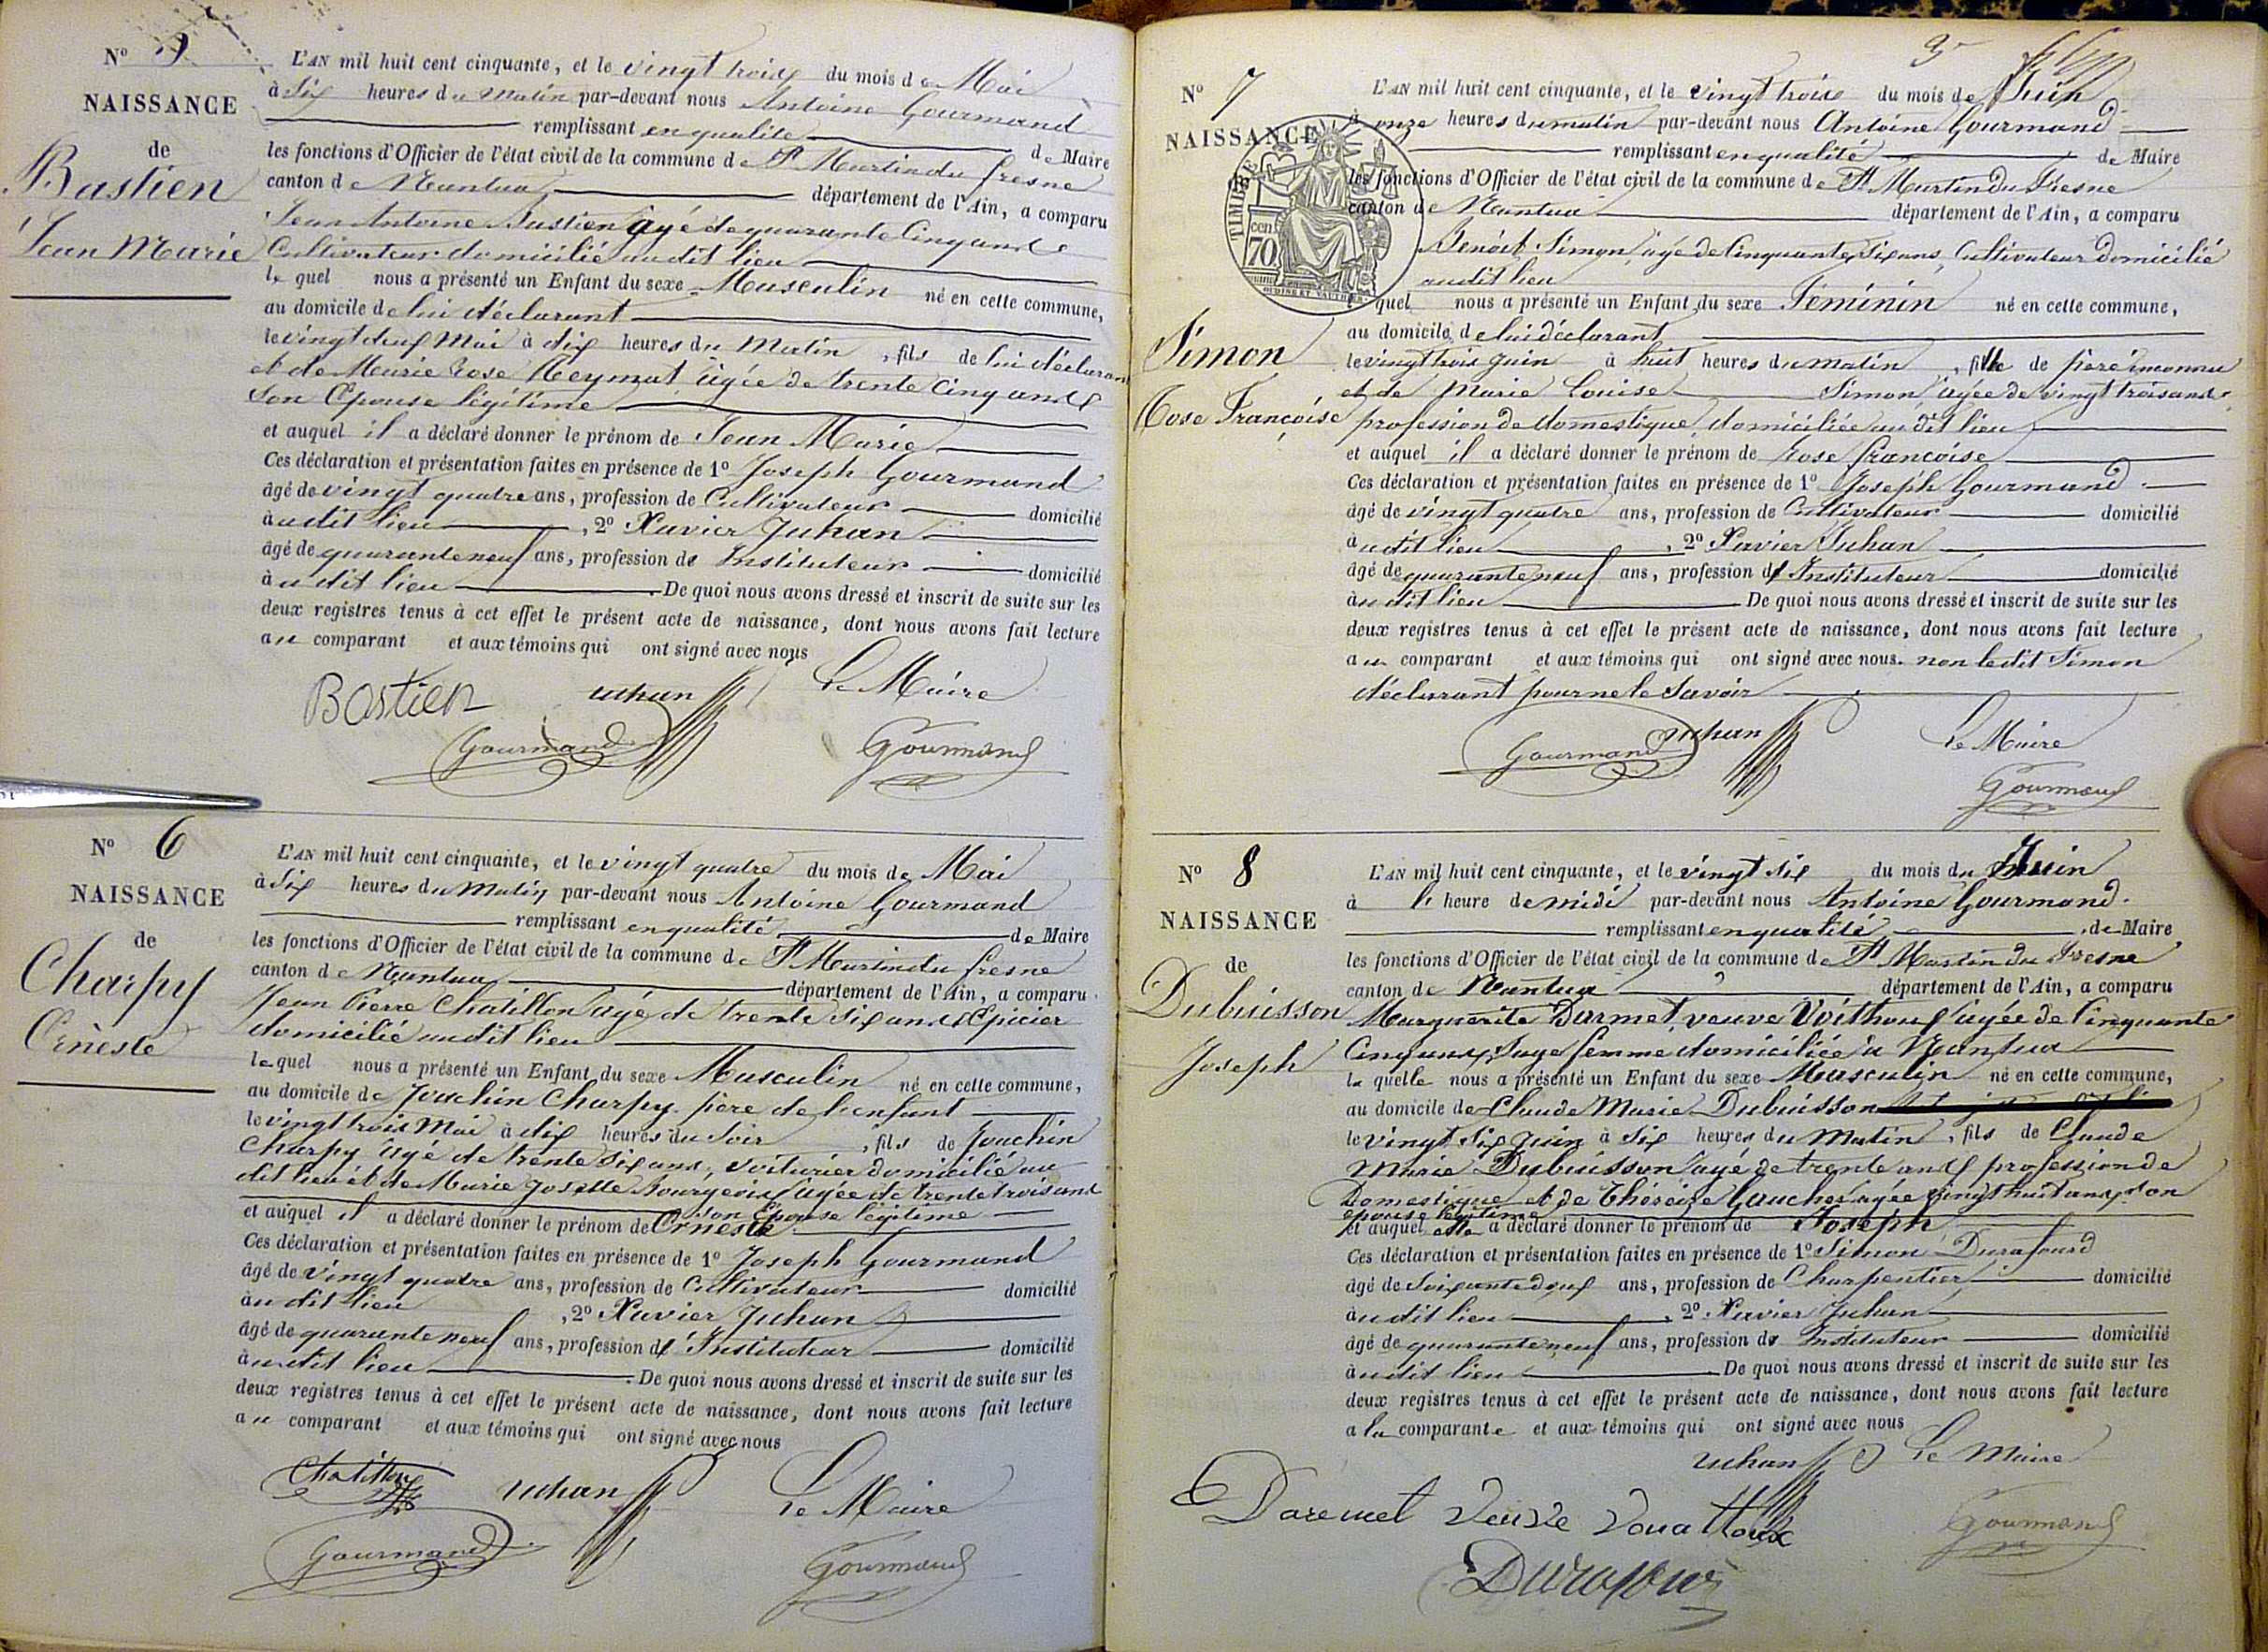 N° 5
NAISSANCE
de
Bastien
Jean Marie
L'AN mil huit cent cinquante, et le vingt trois du mois de Mai
à Six heures du matin par-devant nous Antoine Gourmand
remplissant en qualité de Maire
les fonctions d'Officier de l'état civil de la commune de St Martin du fresne
canton de Nantua département de l'Ain, a comparu
Jean Antoine Bastien agé de quarante Cinq ans
Cultivateur domicilié audit lieu
le quel nous a présenté un Enfant du sexe Masculin né en cette commune,
au domicile de lui déclarant
le vingt deux Mai à dix heures du Matin, fils de lui déclarant
et de Marie Rose Reymat âgée de trente Cinq ans
Son Epouse légitime
et auquel il a déclaré donner le prénom de Jean Marie
Ces déclaration et présentation faites en présence de 1° Joseph Gourmand
âgé de vingt quatre ans, profession de Cultivateur domicilié
audit lieu, 2° Xavier Juhan
âgé de quarante neuf ans, profession de Instituteur domicilié
audit lieu. De quoi nous avons dressé et inscrit de suite sur les
deux registres tenus à cet effet le présent acte de naissance, dont nous avons fait lecture
au comparant et aux témoins qui ont signé avec nous
Bastien Juhan Le Maire
Gourmand Gourmand
N° 6
NAISSANCE
de
Charpy
Ernèste
L'AN mil huit cent cinquante, et le vingt quatre du mois de Mai
à Six heures du Matin par-devant nous Antoine Gourmand
remplissant en qualité de Maire
les fonctions d'Officier de l'état civil de la commune de St Martin du fresne
canton de Nantua département de l'Ain, a comparu
Jean Pierre Chatillon âgé de trente Six ans Epicier
domicilié audit lieu
le quel nous a présenté un Enfant du sexe Masculin né en cette commune,
au domicile de Joachin Charpy père de l'enfant
le vingt trois Mai à dix heures du Soir, fils de Joachin
Charpy âgé de trente Six ans, voiturier domicilié au
dit lieu et de Marie Josette Bourgeois âgée de trente trois ans
son Epouse légitime
et auquel il a déclaré donner le prénom de Ernèste
Ces déclaration et présentation faites en présence de 1° Joseph Gourmand
âgé de vingt quatre ans, profession de Cultivateur domicilié
audit lieu, 2° Xavier Juhan
âgé de quarante neuf ans, profession d'Instituteur domicilié
audit lieu. De quoi nous avons dressé et inscrit de suite sur les
deux registres tenus à cet effet le présent acte de naissance, dont nous avons fait lecture
au comparant et aux témoins qui ont signé avec nous
Chatillon Juhan Le Maire
Gourmand Gourmand
N° 7
NAISSANCE
TIMBRE
cent
70
Simon
Rose Françoise
L'AN mil huit cent cinquante, et le vingt trois du mois de Juin
à onze heures du matin par-devant nous Antoine Gourmand
remplissant en qualité de Maire
les fonctions d'Officier de l'état civil de la commune de St Martin du Fresne
canton de Nantua département de l'Ain, a comparu
Benoit Simon, âgé de Cinquante Six ans, Cultivateur Domicilié
audit lieu
le quel nous a présenté un Enfant du sexe Féminin né en cette commune,
au domicile de lui déclarant
le vingt trois Juin à huit heures du matin, fille de père inconnu
et de Marie Louise Simon âgée de vingt trois ans
profession de domestique, domiciliée au dit lieu
et auquel il a déclaré donner le prénom de Rose françoise
Ces déclaration et présentation faites en présence de 1° Joseph Gourmand
âgé de vingt quatre ans, profession de Cultivateur domicilié
audit lieu, 2° Xavier Juhan
âgé de quarante neuf ans, profession d'Instituteur domicilié
audit lieu De quoi nous avons dressé et inscrit de suite sur les
deux registres tenus à cet effet le présent acte de naissance, dont nous avons fait lecture
au comparant et aux témoins qui ont signé avec nous. non ledit Simon
déclarant pour ne le Savoir
Gourmand Juhan Le Maire
Gourmand
N° 8
NAISSANCE
de
Dubuisson
Joseph
L'AN mil huit cent cinquante, et le vingt six du mois du Juin
à l' heure de midi par-devant nous Antoine Gourmand.
remplissant en qualité de Maire
les fonctions d'Officier de l'état civil de la commune de St Martin du Fresne
canton de Nantua département de l'Ain, a comparu
Marguerite Darmet, veuve Voithoux âgée de Cinquante
Cinq ans, Sage femme domiciliée à Nantua
la quelle nous a présenté un Enfant du sexe Masculin né en cette commune,
au domicile de Claude Marie Dubuisson
le vingt Six Juin à Six heures du Matin, fils de Claude
Marie Dubuisson âgé de trente ans profession de
Domestique et de Thérèze Gaucher agée vingt huit ans, son
épouse légitime
et auquel elle a déclaré donner le prénom de Joseph
Ces déclaration et présentation faites en présence de 1° Simon Durafourd
âgé de Soixante deux ans, profession de Charpentier domicilié
audit lieu, 2° Xavier Juhan
âgé de quarante neuf ans, profession de Instituteur domicilié
audit lieu De quoi nous avons dressé et inscrit de suite sur les
deux registres tenus à cet effet le présent acte de naissance, dont nous avons fait lecture
a la comparante et aux témoins qui ont signé avec nous
Juhan Le Maire
Daremet Veuve Vouattoux Gourmand
Durafour